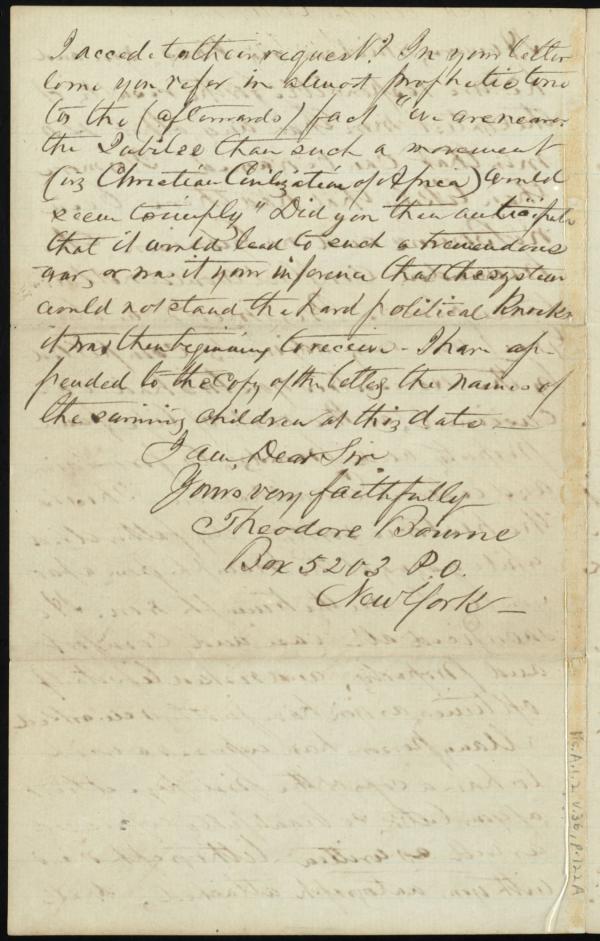 I accede to their request? In your letter
some you refer in almost prophetic tone
to the (afterwards) fact "we are nearer
the Jubilee than such a movement
(viz Christian Civilization of Africa) would
seem to imply" Did you then anticipate
that it would lead to such a tremendous
war, or was it your inference that the system
could not stand the hard political Knocks
it was then beginning to receive - I have ap-
pended to the copy of the letter the names of
the surviving children at this date -
I am, Dear Sir
Yours very faithfully
Theodore Bourne
Box 5203 P.O.
New York -
Ms.A.1.2 v.36, p.122A